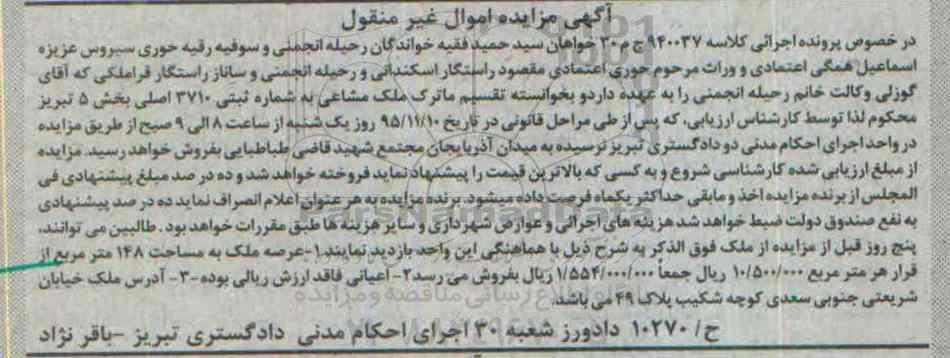 آگهی مزایده اموال غیر منقول
در خصوص پرونده اجرائی کلاسه ۹۴۰۰۳۷ ج م ۳۰ خواهان سید حمید فقیه خواندگان رحیله انجمنی و سوفیه رقیه خوری سیروس عزیزه
اسماعیل همگی اعتمادی و وراث مرحوم خوری اعتمادی مقصود راستگار اسکندانی و رحیله انجمنی و ساناز راستگار قراملکی که آقای
گوزلی وکالت خانم رحیله انجمنی را به عهده دارد و بخوانسته تقسیم ماترک ملک مشاعی به شماره ثبتی ۳۷۱۰ اصلی بخش ۵ تبریز
محکوم لذا توسط کارشناس ارزیابی، که پس از طی مراحل قانونی در تاریخ ۹۵/۱۱/۱۰ روز یک شنبه از ساعت ۸ الی ۹ صبح از طریق مزایده
در واحد اجرای احکام مدنی دو دادگستری تبریز نرسیده به میدان آذربایجان مجتمع شهید قاضی طباطبایی بفروش خواهد رسید. مزایده
از مبلغ ارزیابی شده کارشناسی شروع و به کسی که بالاترین قیمت را پیشنهاد نماید فروخته خواهد شد و ده در صد مبلغ پیشنهادی فی
المجلس از برنده مزایده اخذ و مابقی حداکثر یکماه فرصت داده میشود. برنده مزایده به هر عنوان اعلام انصراف نماید ده در صد پیشنهادی
به نفع صندوق دولت ضبط خواهد شد هزینه های اجرائی و عوارض شهرداری و سایر هزینه ها طبق مقررات خواهد بود. طالبین می توانند،
پنج روز قبل از مزایده از ملک فوق الذکر به شرح ذیل با هماهنگی این واحد بازدید نمایند ۱-عرصه ملک به مساحت ۱۴۸ متر مربع از
قرار هر متر مربع ۱۰/۵۰۰/۰۰۰ ریال جمعاً ۱/۵۵۴/۰۰۰/۰۰۰ ریال بفروش می رسد ۲- اعیانی فاقد ارزش ریالی بوده -۳- آدرس ملک خیابان
شریعتی جنوبی سعدی کوچه شکیب پلاک ۴۹ می باشد.
ح/ ۱۰۲۷۰ دادورز شعبه ۳۰ اجرای احکام مدنی دادگستری تبریز -باقر نژاد